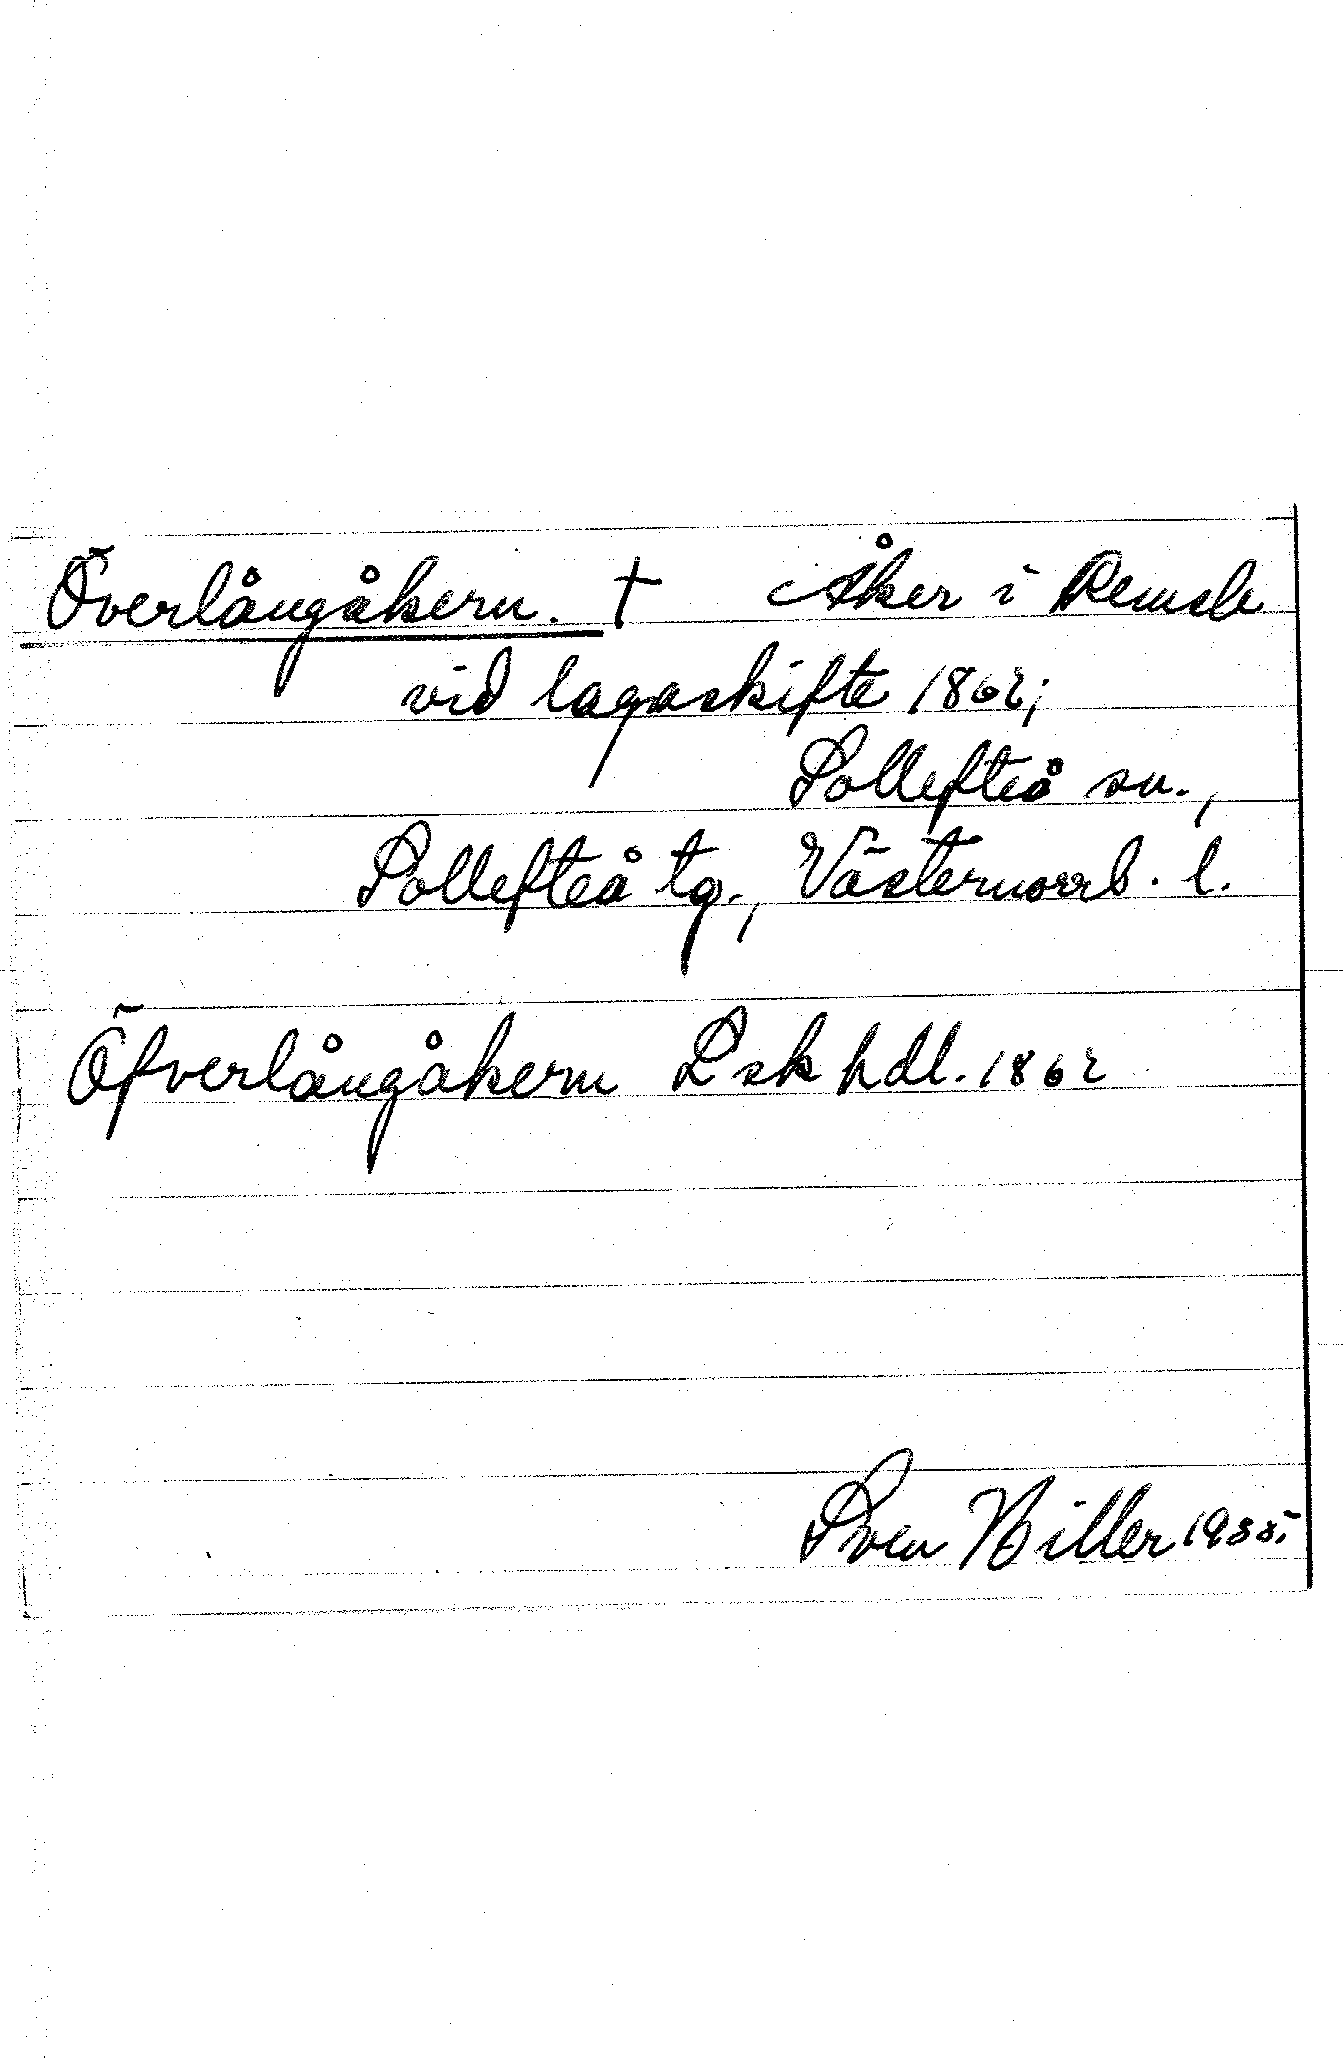 Överlångåkern. † Åker i Remsle
vid lagaskifte 1862;
Sollefteå sn.,
Sollefteå tg., Västernorrl. l.
Öfverlångåkern Lsk hdl. 1862
Sven Hiller